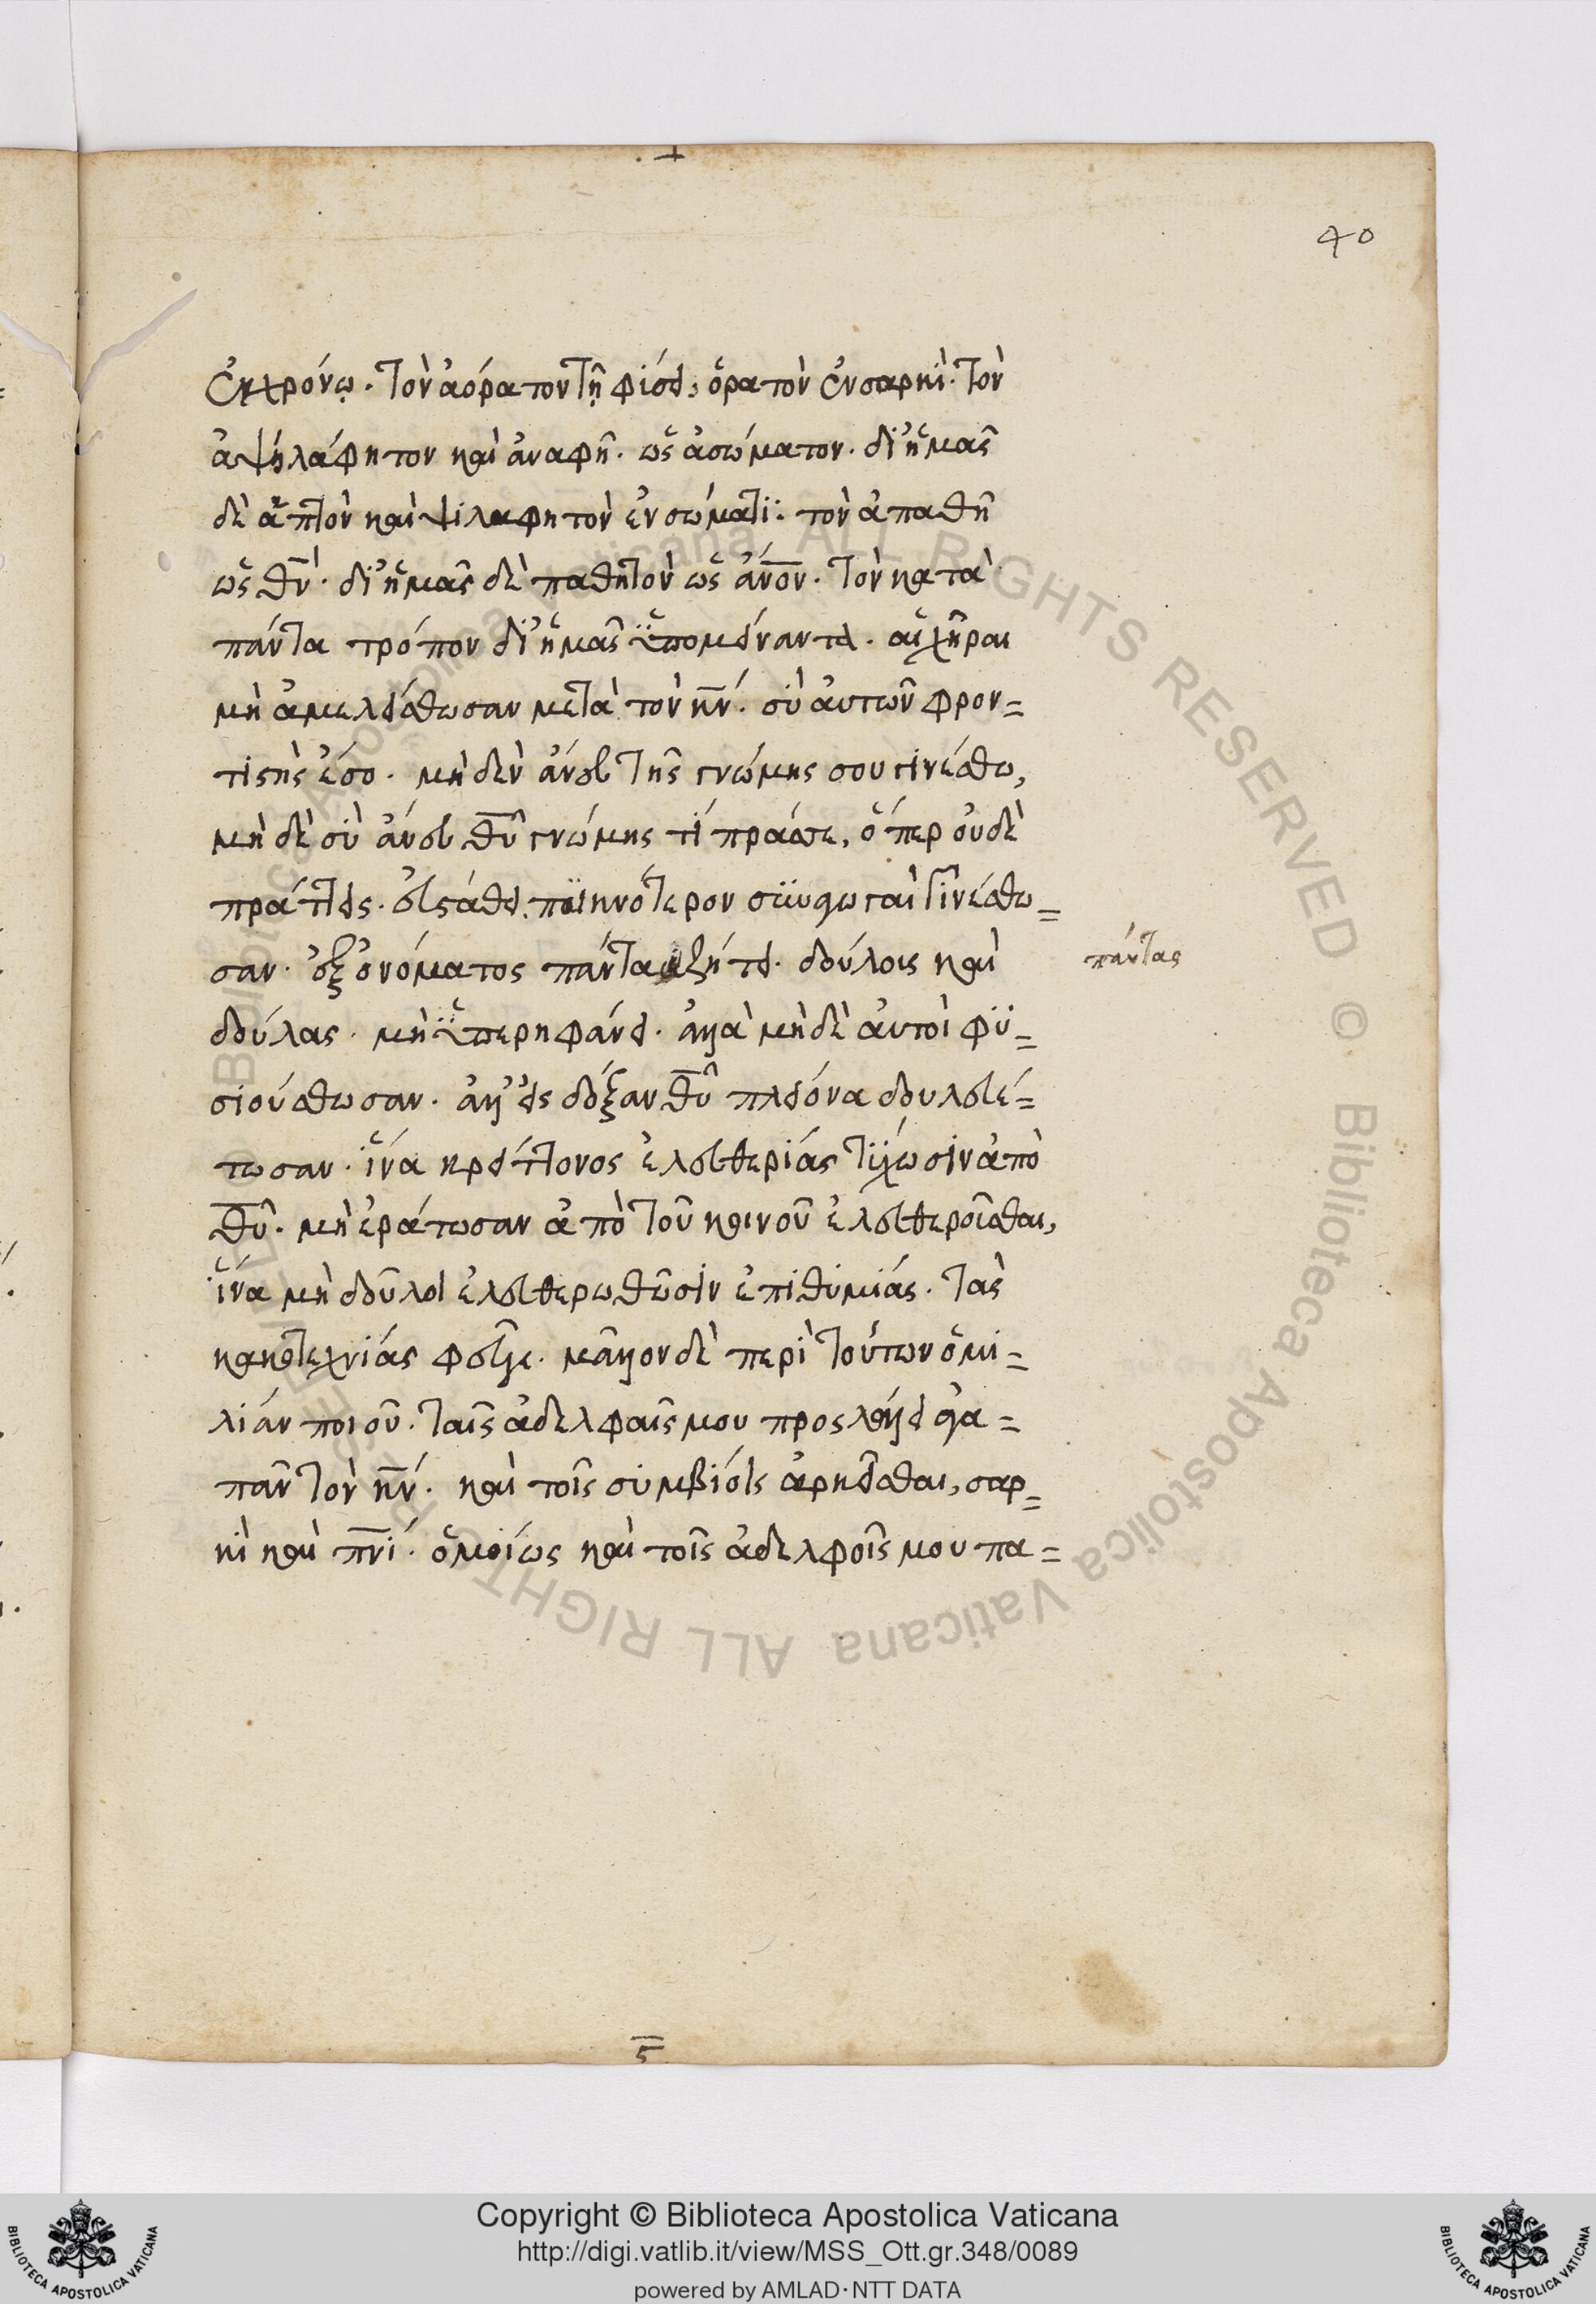 40
ἐν χρόνῳ. τὸν ἀόρατον τῇ φύσει, ὁρατὸν ἐν σαρκὶ. τὸν
ἀψηλάφητον καὶ ἀναφῆ. ὡς ἀσώματον. δι' ἡμᾶς
δὲ ἁπτὸν καὶ ψιλαφητὸν ἐν σώματι. τὸν ἀπαθῆ
ὡς θν̅. δι' ἡμᾶς δὲ παθητὸν ὡς ἄν̅ο̅ν̅. τὸν κατὰ
πάντα τρόπον δι' ἡμᾶς ὑπομείναντα. αἱ χῆραι
μὴ ἀμελείσθωσαν μετὰ τὸν κ̅ν̅. σὺ αὐτῶν φρον=
τιστὴς ἔσο. μὴ δὲν ἄνευ τῆς γνώμης σου γινέσθω,
μὴ δὲ σὺ ἄνευ θ̅υ̅ γνώμης τί πράσσε, ὅπερ οὐδὲ
πράττεις. εὐστάθει. πυκνότερον συναγωγαὶ γινέσθω=
σαν. ἐξ ὀνόματος πάντα ζήτει. δούλοις καὶ
πάντας
δούλας. μὴ ὑπερηφάνει. ἀλλὰ μὴ δὲ αὐτοὶ φυ=
σιούσθωσαν. ἀλλ' εἰς δόξαν θ̅υ̅ πλείονα δουλευέ=
τωσαν. ἵνα κρείττονος ἐλευθερίας τύχωσιν ἀπὸ
θ̅υ̅. μὴ ἐράτωσαν ἀπὸ τοῦ κοινοῦ ἐλευθεροῦσθαι,
ἵνα μὴ δοῦλοι ἐλευθερωθῶσιν ἐπιθυμίας. τὰς
κακοτεχνίας φεῦγε. μᾶλλον δὲ περὶ τούτων ὁμι=
λίαν ποιοῦ. ταῖς ἀδελφαῖς μου προσλάλει ἀγα=
πᾶν τὸν κ̅ν̅. καὶ τοῖς συμβίοις ἀρκεῖσθαι, σαρ=
κὶ καὶ π̅ν̅ι̅. ὁμοίως καὶ τοῖς ἀδελφοῖς μου πα=
ς̅
Copyright © Biblioteca Apostolica Vaticana
http://digi.vatlib.it/view/MSS_Ott.gr.348/0089
powered by AMLAD·NTT DATA
BIBLIOTECA APOSTOLICA VATICANA
BIBLIOTECA APOSTOLICA VATICANA
© Biblioteca Apostolica Vaticana ALL RIGHTS RESERVED